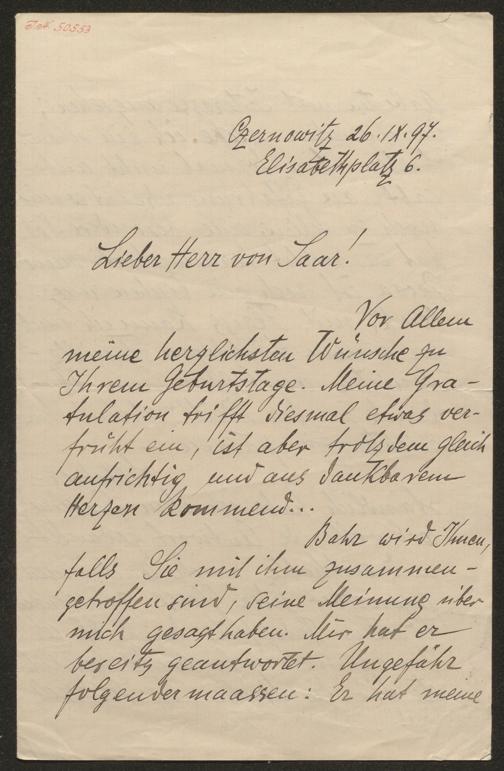 J.N. 50553
Czernowitz 26.IX.97.
Elisabethplatz 6.
Lieber Herr von Saar!
Vor Allem
meine herzlichsten Wünsche zu
Ihrem Geburtstage. Meine Gra-
tulation trifft diesmal etwas ver-
früht ein, ist aber trotzdem gleich
aufrichtig und aus dankbarem
Herzen kommend...
Bahr wird Ihnen,
falls Sie mit ihm zusammen-
getroffen sind, seine Meinung über
mich gesagt haben. Mir hat er
bereits geantwortet. Ungefähr
folgendermaassen: Er hat meine